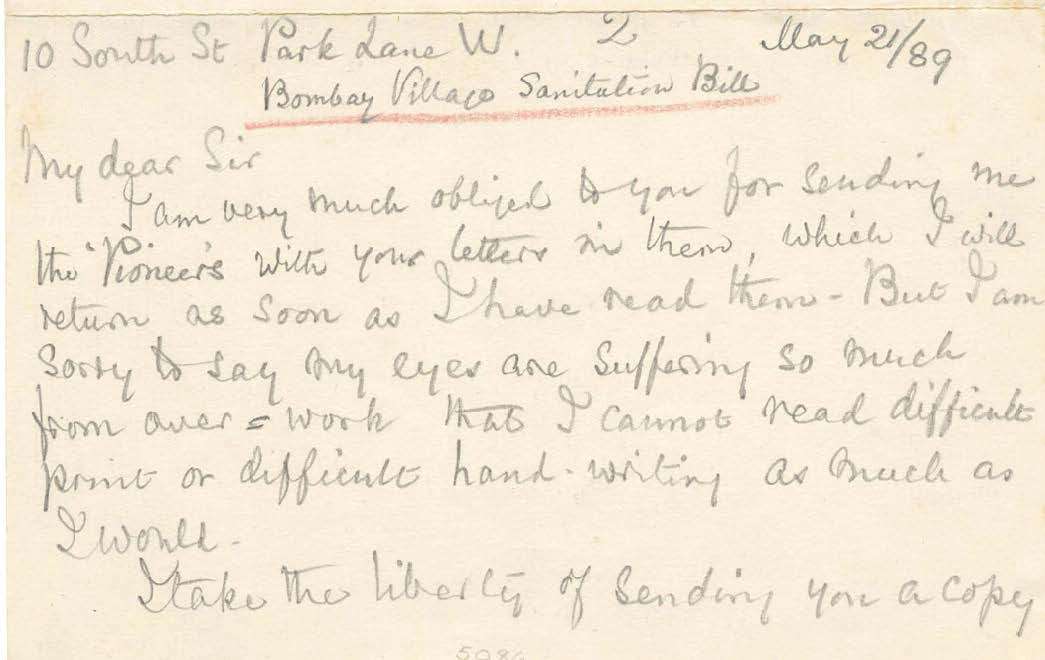 10 South St Park Lane W. 2 May 21/89
Bombay Village Sanitation Bill
My dear Sir
I am very much obliged to you for sending me
the 'Pioneers with your letters in them, which I will
return as soon as I have read them - But I am
sorry to say my eyes are suffering so much
from over=work that I cannot read difficult
print or difficult hand-writing as much as
I would -
I take the liberty of sending you a copy